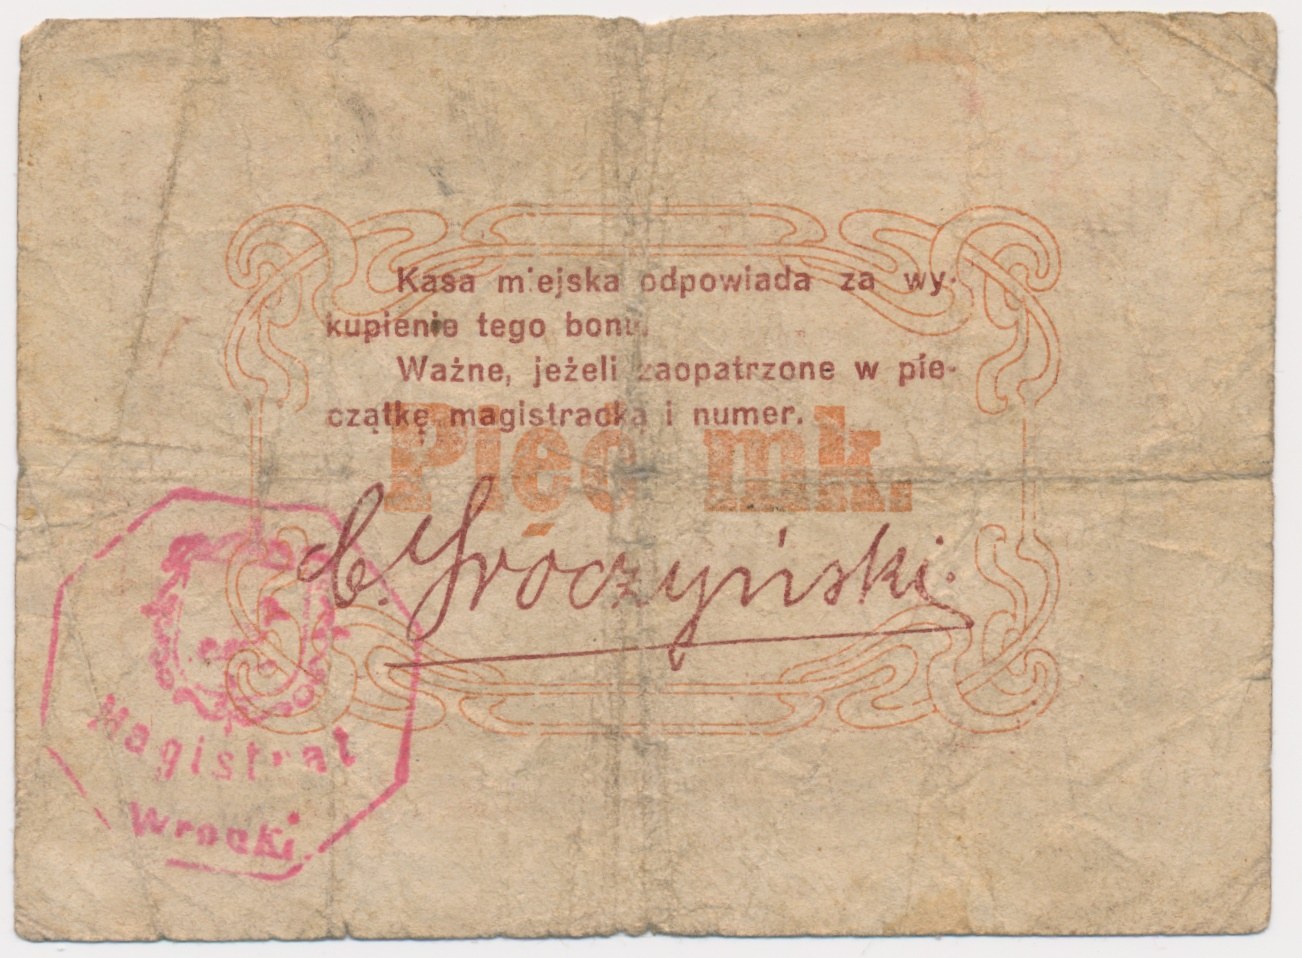 Kasa miejska odpowiada za wy-
kupienie tego bonu.
Ważne, jeżeli zaopatrzone w pie-
czątkę magistracką i numer.
Pięć mk.
Magistrat
Wronki